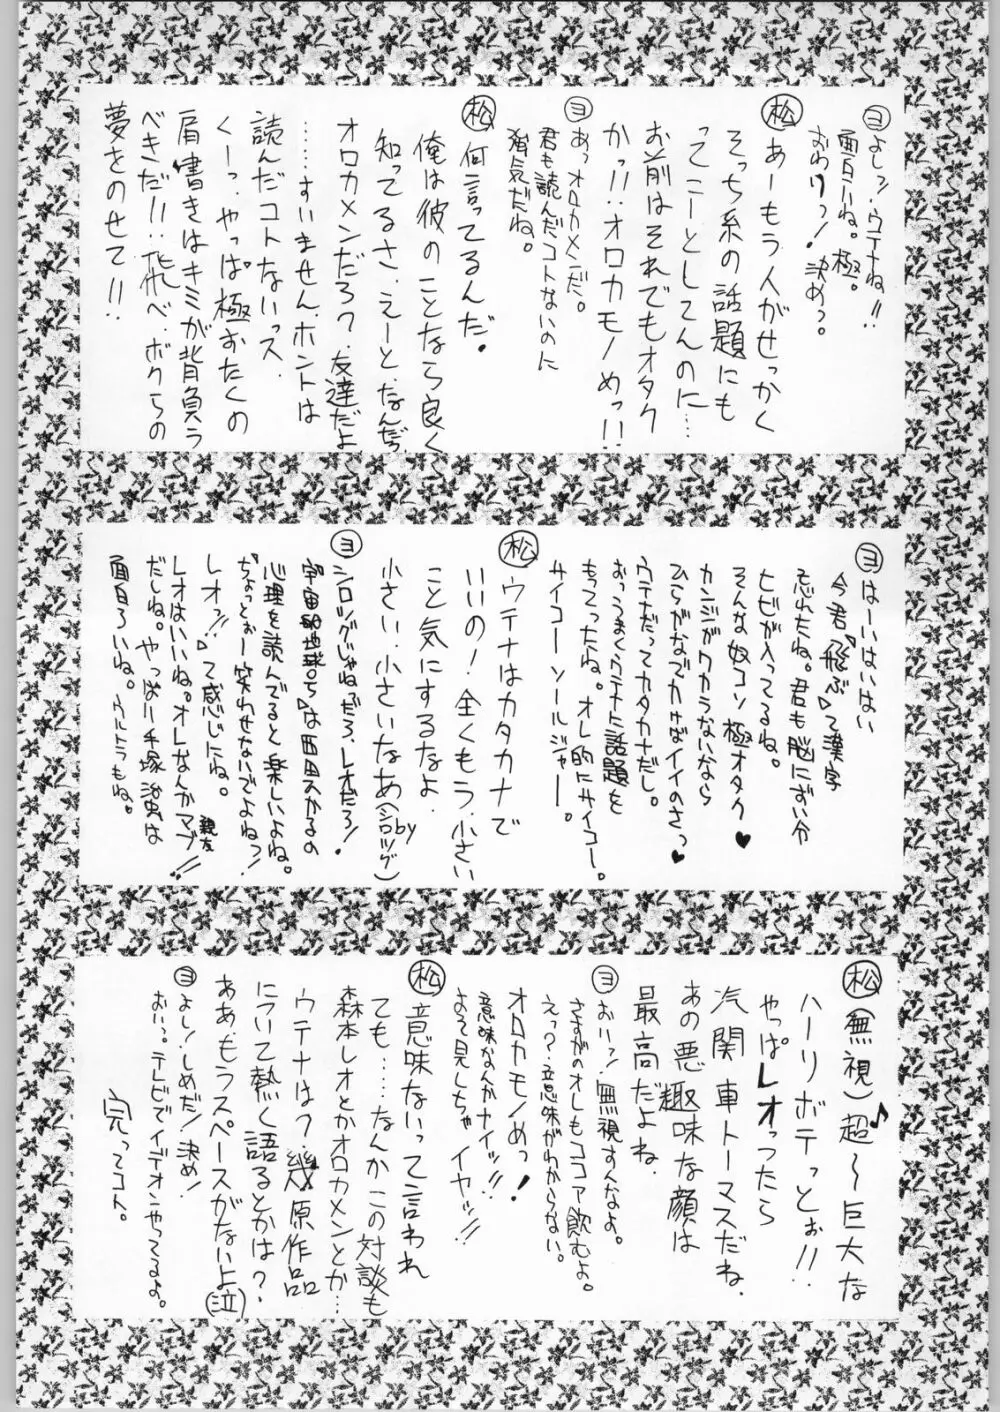 ヨ よしッ!ウテナね!!
面白いね。極。
おわりっ!決めっ。
松 あーもう人がせっかく
そっち系の話題にも
ってこーとしてんのに…
お前はそれでもオタク
かっ!!オロカモノめっ!!
ヨ あっオロカメンだ。
君も読んだコトないのに
病気だね。
松 何言ってるんだ。
俺は彼のことなら良く
知ってるさ、えーと、なんだっ
オロカメンだろ?友達だよ
……すいません、ホントは
読んだコトないっス
くーっ、やっぱ極おたくの
肩書きはキミが背負う
べきだ!!飛べ、ボクらの
夢をのせて!!
ヨ はーいはいはい
今君『飛ぶ』て漢字
忘れたね。君も脳にずい分
ヒビが入ってるね。
そんな奴コソ極オタク♥
カンジがワカラないなら
ひらがなでカけばイイのさっ♥
ウテナだってカタカナだし。
おっうまくウテナに話題を
もってったね。オレ的にサイコー。
サイコーソールジャー。
松 ウテナはカタカナで
いいの!全くもう、小さい
こと気にするなよ。
小さい、小さいなあ(by シロッグ)
ヨ シロッグじゃねーだろ、レオだろ!
『宇宙船地球ごう』は西田スかよの
心理を読んでると楽しいよね。
『ちょっとぉー笑わせないでよねっ!
レオッ!!』て感じにね。
レオはいいね。オレなんかマブ親友!!
だしね。やっぱり手塚治虫は
面白ろいね。ウルトラもね。
松 (無視)超〜♪巨大な
ハーリボテっとぉ!!
やっぱレオったら
汽関車トーマスだね、
あの悪趣味な顔は
最高だよね。
ヨ おいっ!無視すんなよ。
さすがのオレもココア飲むよ。
えっ?意味がわからない。
オロカモノめっ!
意味なんかナイッ!!
よそ見しちゃイヤッ!!
松 意味ないって言われ
ても……なんかこの対談も
森本レオとかオロカメンとか…
ウテナは?幾原作品
について熱く語るとかは?
ああもうスペースがないよ(泣)
ヨ よし!しめだ!決め!
おいっ。テレビでイデオンやってるよ。
完ってコト。